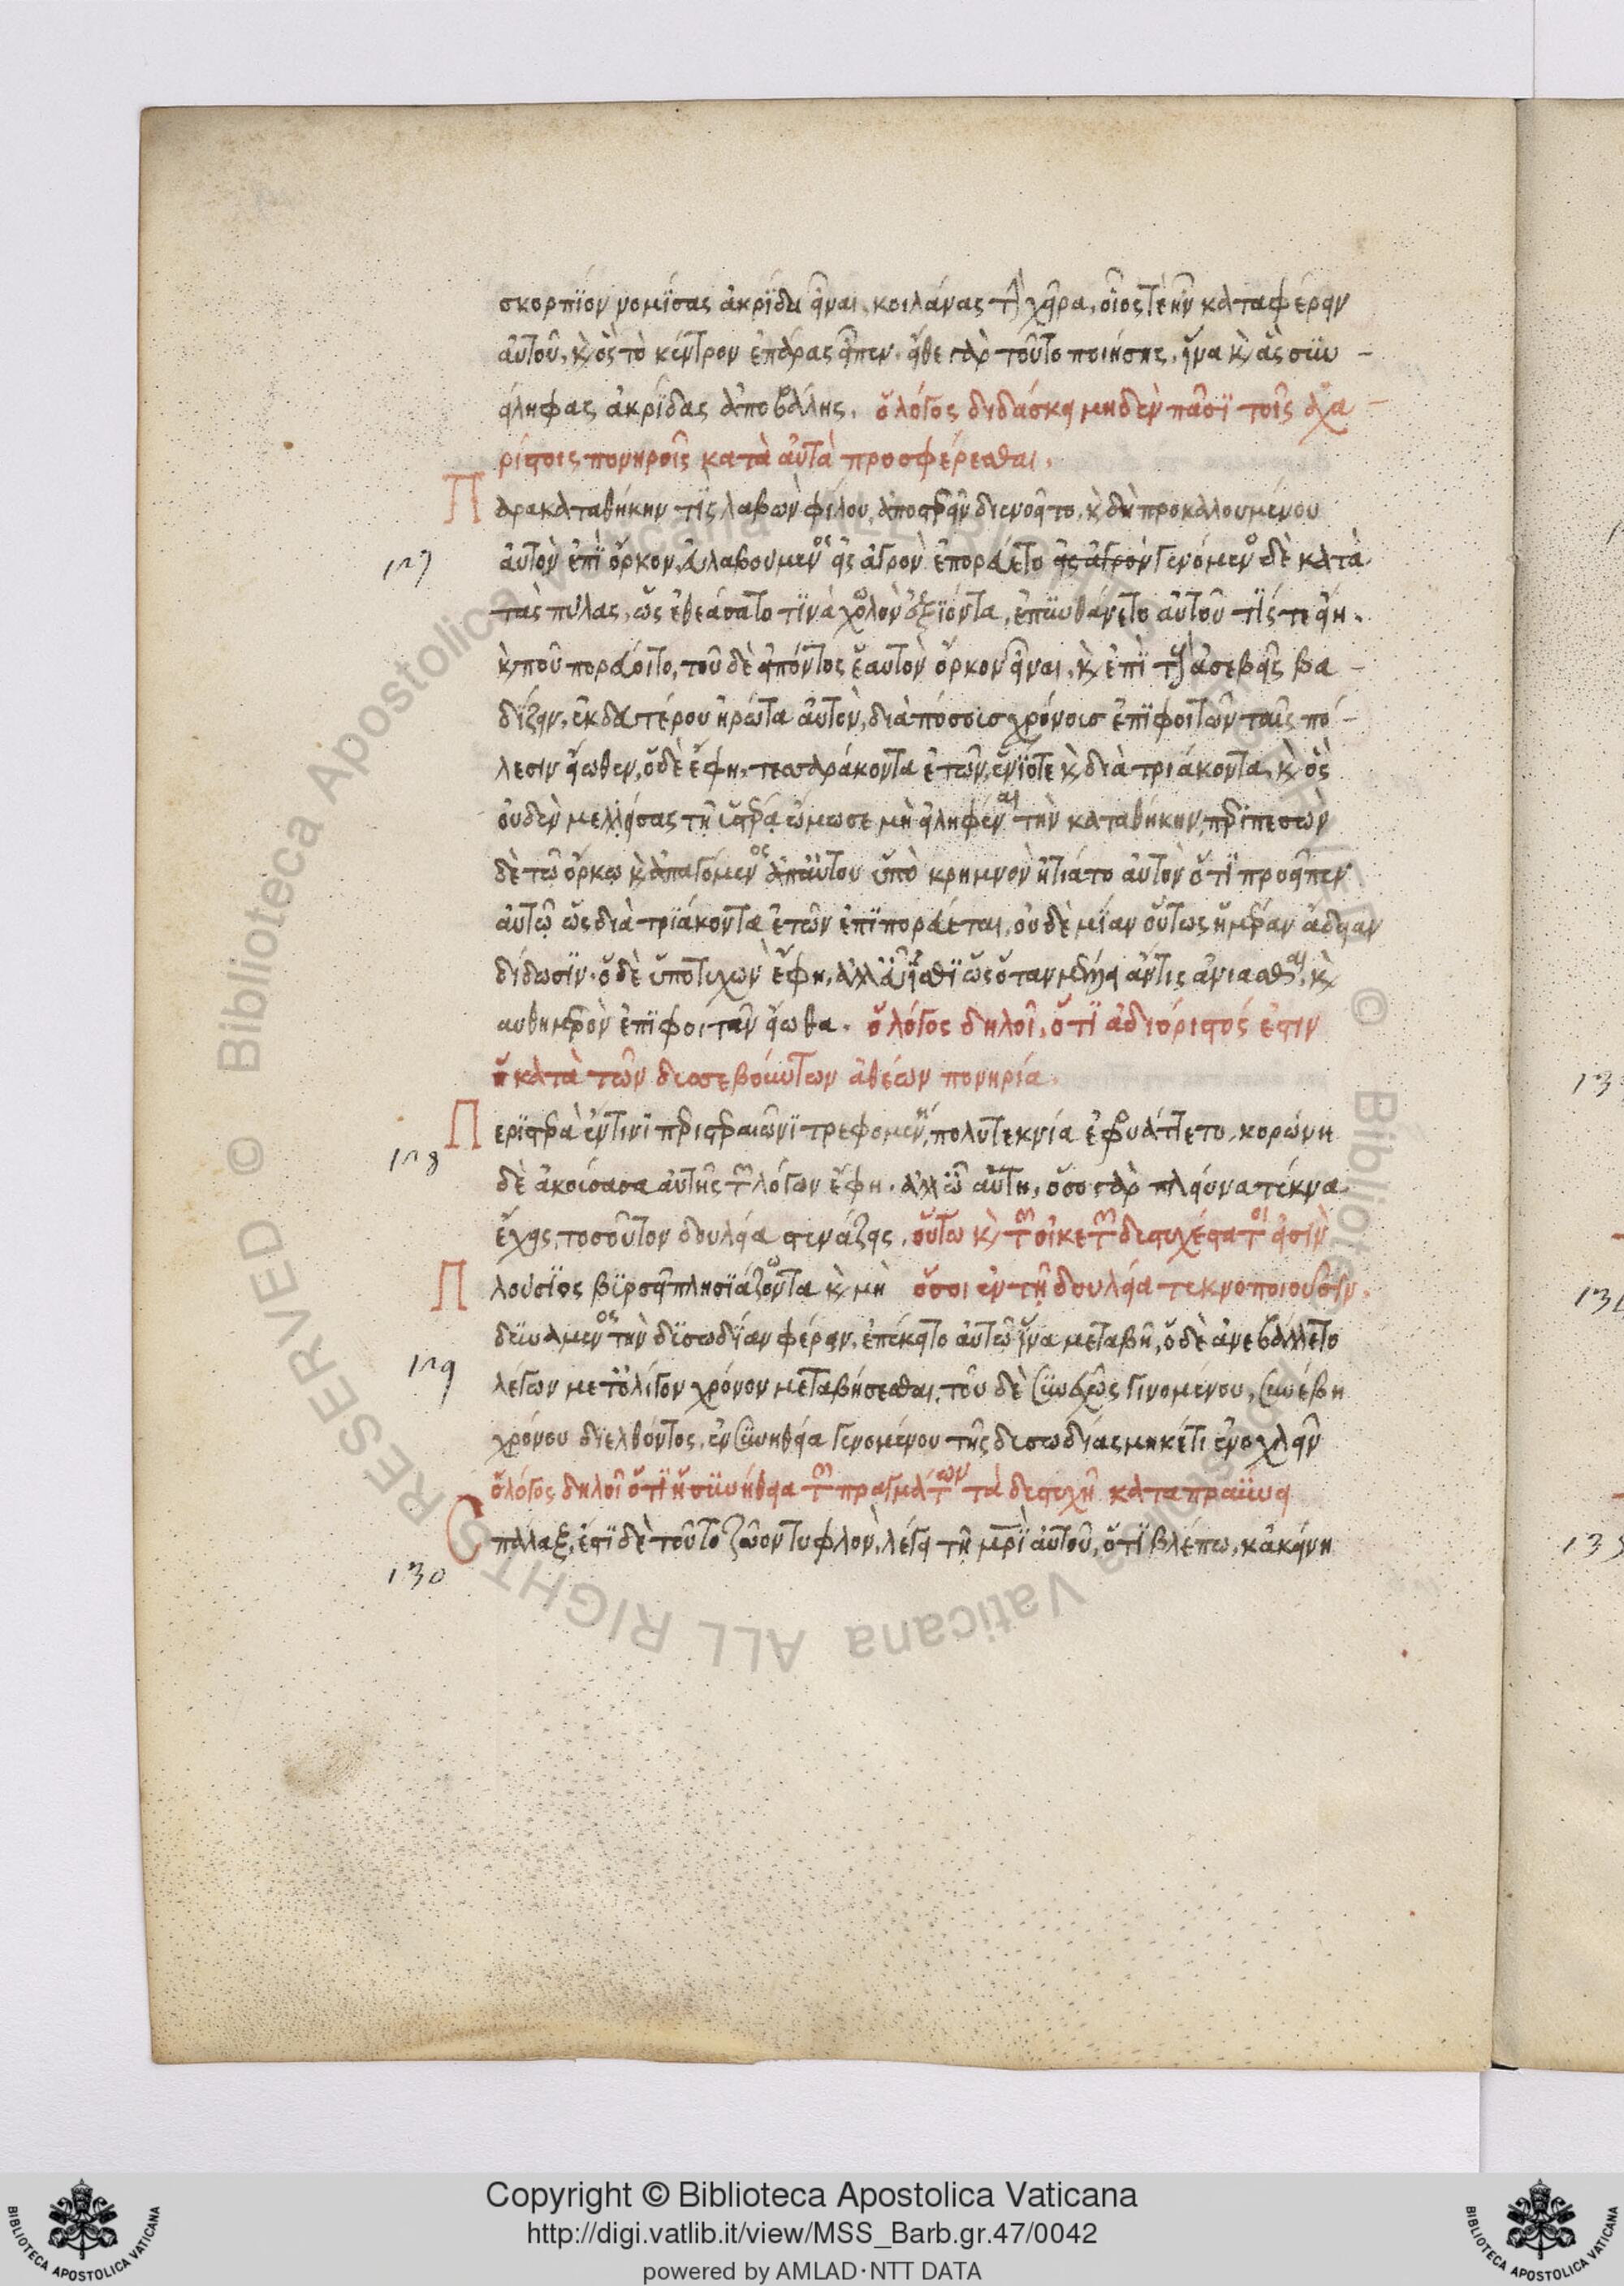 σκορπΐον νομΐσας ἀκρΐδα εἶναι, κοιλάνας τὴν χεῖρα, οἷος τε ἦν καταφέρειν
αὐτοῦ, κ ὃς τὸ κέντρον ἐπάρας εἶπεν. εἴθε γὰρ τοῦτο ποιήσης, ἵνα κ ἃς συν -
είληφας ἀκρΐδας ἀποβάλης. ὁ λόγος διδάσκει μηδὲν πᾶσϊ τοῖς ἀχα -
ρίστοις πονηροῖς κατὰ αὐτὰ προσφέρεσθαι.
Παρακαταθήκην τῒς λαβὼν φίλου, ἀποστερεῖν διενοεῖτο, κ δὴ προκαλουμένου
127
αὐτὸν ἐπῒ ὅρκον, εὐλαβούμενος εἰς ἀγρὸν ἐπορεύετο εἰς ἀγρὸν γενόμενος δὲ κατὰ
τὰς πύλας, ὡς ἐθεάσατο τϊνὰ χολὸν ἐξϊόντα, ἐπυνθάνετο αὐτοῦ τΐς τε εἴη.
κ ποῦ πορεύοιτο, τοῦ δὲ εἰπόντος ἑαυτὸν ὅρκον εἶναι, κ ἐπῒ τοὺς ἀσεβεῖς βα -
δίζειν, ἐκ δευτέρου ἠρώτα αὐτὸν, διὰ πόσοισ χρόνοισ ἐπϊφοιτᾶν ταῖς πό -
λεσιν εἴωθεν, ὁ δὲ ἔφη, τεσσαράκοντα ἐτῶν, ἐνΐοτε κ διὰ τριάκοντα, κ ὃς
οὐδὲν μελλήσας τῇ ὑστεραία ὤμωσε μὴ εἰληφέναι τὴν καταθήκην, περιπεσὼν
δὲ τῷ ὅρκω κ ἀπαγόμενος ἀπ αὐτου ὑπὸ κρημνὸν ἠτιάτο αὐτὸν ὅτϊ προεῖπεν
αὐτῷ ὡς διὰ τρϊάκοντα ἐτῶν ἐπϊπορεύεται, οὐδὲ μΐαν οὕτως ἡμέραν ἄδειαν
δίδωσϊν. ὁ δὲ ὑποτυχὼν ἔφη, ἀλλ εὖ ἴσθϊ ὡς ὅταν μέλλη ἄντις ἀνιᾶσθαι, κ
αυθημερὸν ἐπϊφοιτᾶν εἴωθα. ὁ λόγος δηλοῖ, ὅτϊ ἀδιόριστός ἐστιν
ἡ κατὰ τῶν δυσσεβούντων ἀθέων πονηρία.
Περϊστερὰ ἔν τινϊ περιστεραιῶνϊ τρεφομένη, πολυτεκνία ἐφρυάττετο, κορώνη
128
δὲ ἀκούσασα αὐτῆς τῶν λόγων ἔφη. ἀλλ ὦ αὕτη, ὅσο γὰρ πλείονα τέκνα
ἔχεις, τοσοῦτον δουλεία στενάζεις. οὕτω κ τῶν οἰκετῶν δυστυχέστατοί εἰσιν
Πλούσϊος βϊρσεῖ πλησϊάζοντα κ μὴ ὅσοι ἐν τῇ δουλεία τεκνοποιοῦσιν.
δϋνάμενος τὴν δϋσωδΐαν φέρειν, ἐπέκειτο αὐτῷ ἵνα μεταβῆ, ὁ δὲ ἀνεβάλλετο
129
λέγων μετ ὀλίγον χρόνον μεταβήσεσθαι, τοῦ δὲ συνεχῶς γινομένου, συνέβη
χρόνου διελθόντος, ἐν συνηθεία γενομένου τῆς δυσωδίας μηκέτι ἐνοχλεῖν
ὁ λόγος δηλοῖ ὅτϊ ἡ συνήθεια τῶν πραγμάτων τὰ δυστυχῆ καταπραΰνει
Σπάλαξ, ἔστϊ δὲ τοῦτο ζῷον τυφλὸν, λέγει τῇ μρῒ αὐτοῦ, ὅτϊ βλέπω, κἀκείνη
130
Copyright © Biblioteca Apostolica Vaticana
http://digi.vatlib.it/view/MSS_Barb.gr.47/0042
powered by AMLAD·NTT DATA